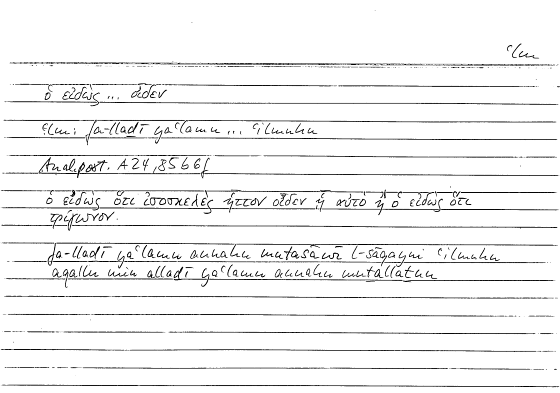 ʿlm
ὁ εἰδὼς ... οἶδεν
ʿlm: fa-lladī yaʿlamu ... ʿilmuhu
Anal. post. A 24, 85b6f
ὁ εἰδὼς ὅτι ἰσοσκελὲς ἧττον οἶδεν ᾗ αὐτὸ ἢ ὁ εἰδὼς ὅτι
τρίγωνον.
fa-lladī yaʿlamu annahu mutasāwī l-sāqayni ʿilmuhu
aqallu min alladī yaʿlamu annahu mutallatun